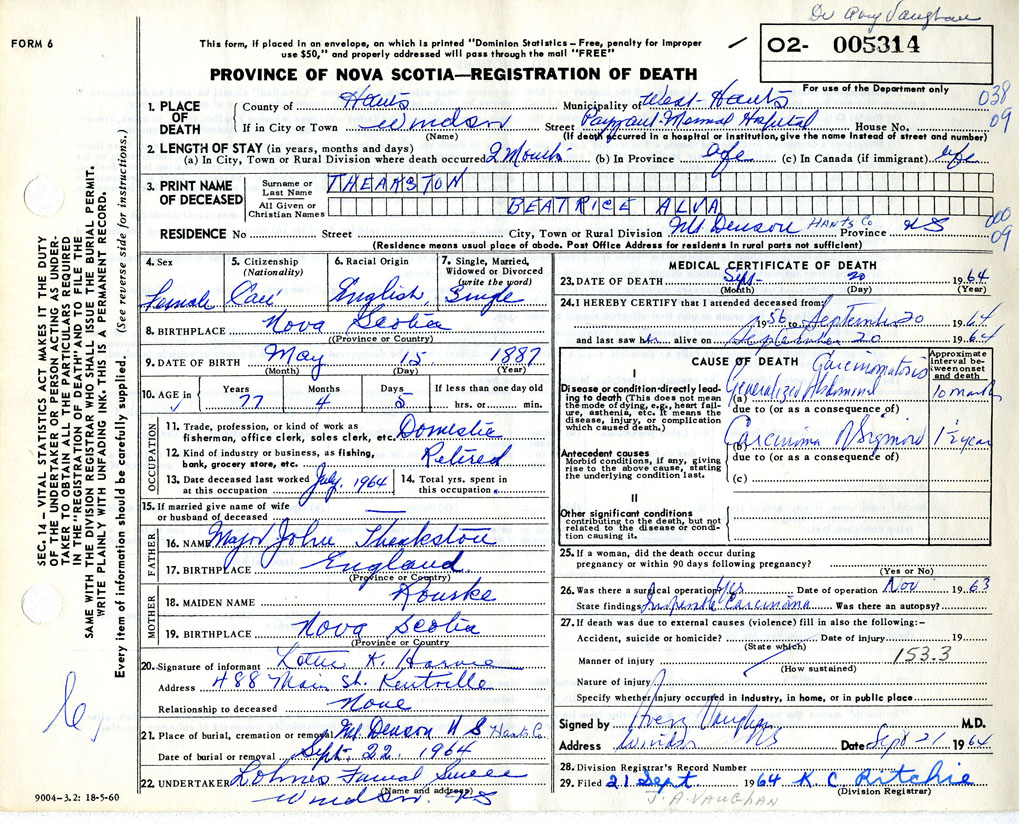 Dr Avery Vaughan
FORM 6
This form, if placed in an envelope, on which is printed "Dominion Statistics – Free, penalty for improper
use $50," and properly addressed will pass through the mail "FREE"
02- 005314
For use of the Department only
PROVINCE OF NOVA SCOTIA—REGISTRATION OF DEATH
SEC. 14 – VITAL STATISTICS ACT MAKES IT THE DUTY
OF THE UNDERTAKER OR PERSON ACTING AS UNDER-
TAKER TO OBTAIN ALL THE PARTICULARS REQUIRED
IN THE "REGISTRATION OF DEATH" AND TO FILE THE
SAME WITH THE DIVISION REGISTRAR WHO SHALL ISSUE THE BURIAL PERMIT.
WRITE PLAINLY WITH UNFADING INK. THIS IS A PERMANENT RECORD.
Every item of information should be carefully supplied. (See reverse side for instructions.)
1. PLACE OF DEATH
County of Hants Municipality of West-Hants 038
If in City or Town Windsor Street Payzant Memorial Hospital House No. 09
(Name) (If death occurred in a hospital or institution, give the name instead of street and number)
2. LENGTH OF STAY (in years, months and days)
(a) In City, Town or Rural Division where death occurred 2 Months (b) In Province life (c) In Canada (if immigrant) life
3. PRINT NAME OF DECEASED
Surname or Last Name THEAKSTON
All Given or Christian Names BEATRICE ALVA
000
09
RESIDENCE No Street City, Town or Rural Division Mt Denson Hants Co Province NS
(Residence means usual place of abode. Post Office Address for residents in rural parts not sufficient)
4. Sex Female
5. Citizenship (Nationality) Can
6. Racial Origin English
7. Single, Married, Widowed or Divorced (write the word) Single
8. BIRTHPLACE Nova Scotia
(Province or Country)
9. DATE OF BIRTH May 15 1887
(Month) (Day) (Year)
10. AGE in Years 77 Months 4 Days 5 If less than one day old hrs. or min.
OCCUPATION
11. Trade, profession, or kind of work as fisherman, office clerk, sales clerk, etc. Domestic
12. Kind of industry or business, as fishing, bank, grocery store, etc. Retired
13. Date deceased last worked at this occupation July, 1964
14. Total yrs. spent in this occupation
15. If married give name of wife or husband of deceased —
FATHER
16. NAME Major John Theakston
17. BIRTHPLACE England
(Province or Country)
MOTHER
18. MAIDEN NAME
19. BIRTHPLACE Nova Scotia
(Province or Country
20. Signature of informant K. Harvie
Address 488 Main St. Kentville
Relationship to deceased None
21. Place of burial, cremation or removal Mt Denson N S Hants Co
Date of burial or removal Sept. 22. 1964
22. UNDERTAKER Funeral Service
(Name and address)
Windsor. NS
9004–3.2: 18-5-60
MEDICAL CERTIFICATE OF DEATH
23. DATE OF DEATH Sept- 20 1964
(Month) (Day) (Year)
24. I HEREBY CERTIFY that I attended deceased from:
1956 to September 20 1964
and last saw her alive on September 20 1964
CAUSE OF DEATH
Approximate interval between onset and death
I
Disease or condition directly leading to death (This does not mean the mode of dying, e.g., heart failure, asthenia, etc. It means the disease, injury, or complication which caused death.)
(a) Generalized Abdominal Carcinomatosis 10 months
due to (or as a consequence of)
(b) Carcinoma of Sigmoid 1½ year
Antecedent causes
Morbid conditions, if any, giving rise to the above cause, stating the underlying condition last.
due to (or as a consequence of)
(c)
II
Other significant conditions contributing to the death, but not related to the disease or condition causing it.
25. If a woman, did the death occur during
pregnancy or within 90 days following pregnancy?
(Yes or No)
26. Was there a surgical operation? Yes Date of operation Nov 1963
State findings Carcinoma Was there an autopsy?
27. If death was due to external causes (violence) fill in also the following:–
Accident, suicide or homicide? Date of injury 19
(State which)
Manner of injury 153.3
(How sustained)
Nature of injury
Specify whether injury occurred in industry, in home, or in public place
Signed by Avery Vaughan M.D.
Address Windsor NS Date Sept 21 1964
28. Division Registrar's Record Number
29. Filed 21 Sept 1964 K. C. Ritchie
(Division Registrar)
J. A. VAUGHAN